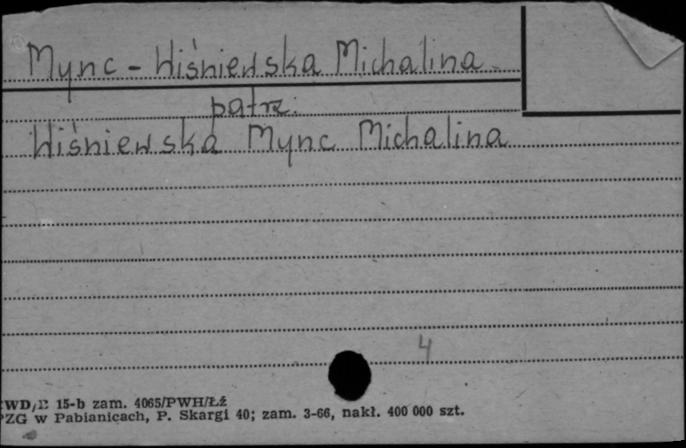 Mync - Wiśniewska Michalina
patrz:
Wiśniewska Mync Michalina
4
WD/E 15-b zam. 4065/PWH/Łź
PZG w Pabianicach, P. Skargi 40; zam. 3-66, nakł. 400 000 szt.